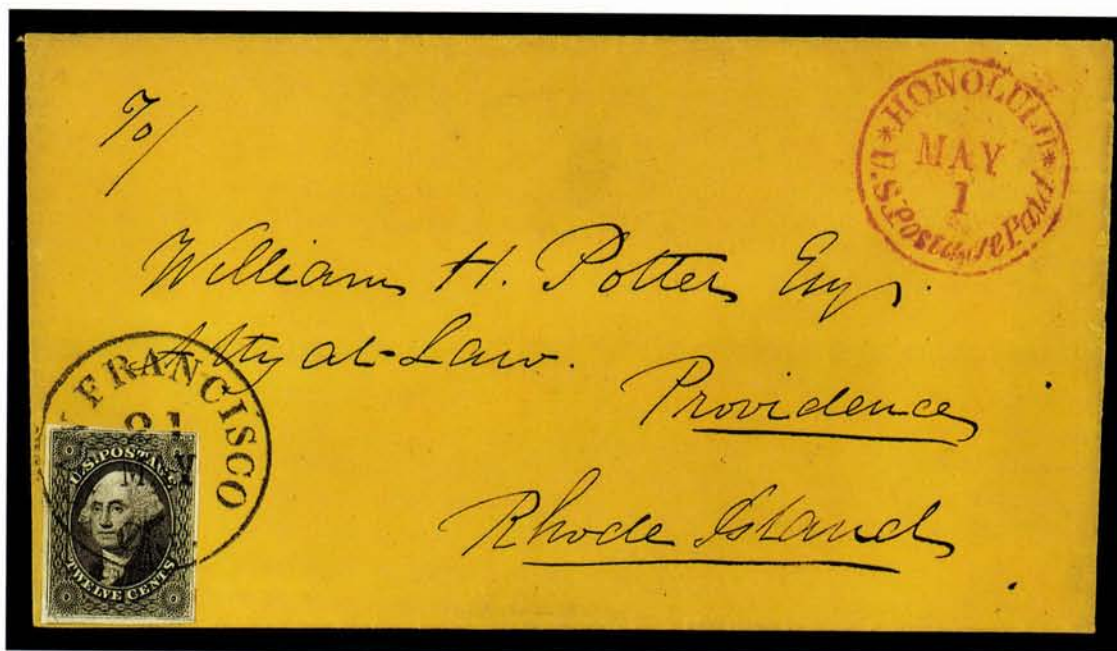 To/
HONOLULU
MAY
1
* U.S. Postage Paid *
William H. Potter Esqr.
Atty at-Law.
Providence
Rhode Island
FRANCISCO
21
MAY
U.S. POSTAGE
TWELVE CENTS